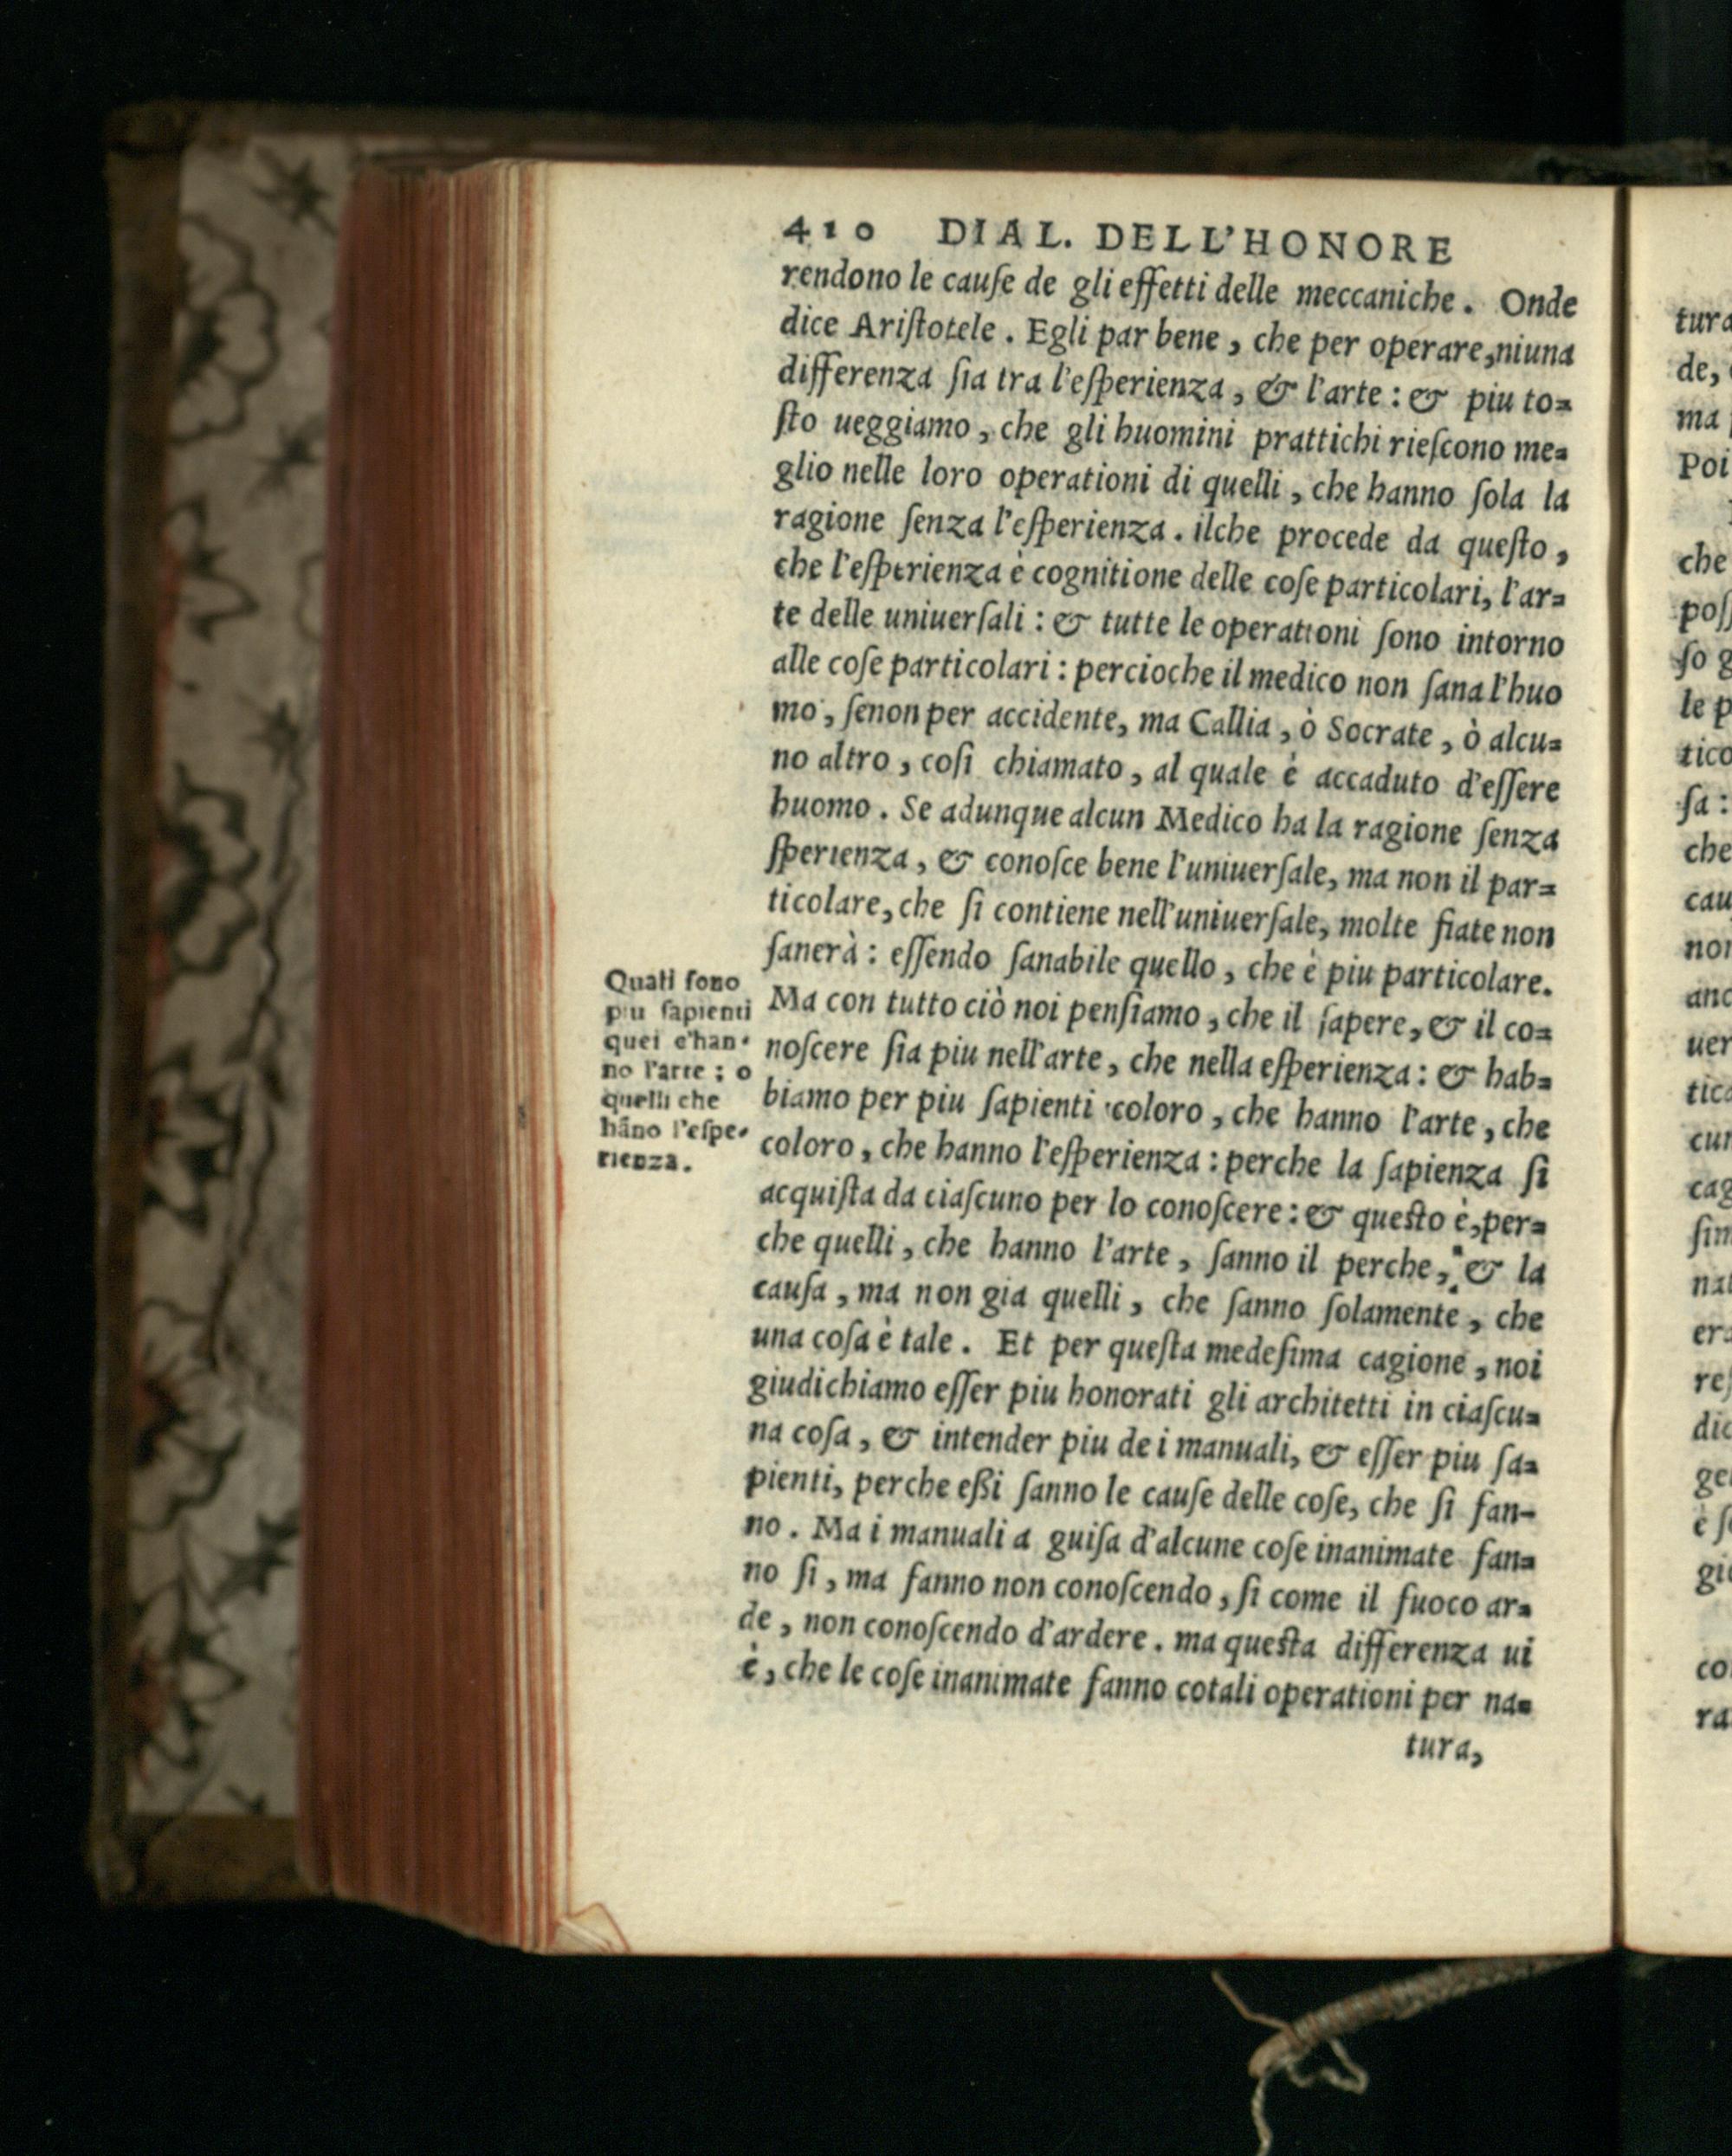 410 DIAL. DELL'HONORE
rendono le cauſe de gli effetti delle meccaniche. Onde
dice Ariſtotele. Egli par bene, che per operare, niuna
differenza ſia tra l'eſperienza, & l'arte: & piu to=
ſto ueggiamo, che gli huomini prattichi rieſcono me=
glio nelle loro operationi di quelli, che hanno ſola la
ragione ſenza l'eſperienza. ilche procede da queſto,
che l'eſperienza è cognitione delle coſe particolari, l'ar=
te delle uniuerſali: & tutte le operationi ſono intorno
alle coſe particolari: percioche il medico non ſana l'huo
mo, ſenon per accidente, ma Callia, ò Socrate, ò alcu=
no altro, coſi chiamato, al quale è accaduto d'eſſere
huomo. Se adunque alcun Medico ha la ragione ſenza
ſperienza, & conoſce bene l'uniuerſale, ma non il par=
ticolare, che ſi contiene nell'uniuerſale, molte fiate non
ſanerà: eſſendo ſanabile quello, che è piu particolare.
Ma con tutto ciò noi penſiamo, che il ſapere, & il co=
noſcere ſia piu nell'arte, che nella eſperienza: & hab=
biamo per piu ſapienti coloro, che hanno l'arte, che
coloro, che hanno l'eſperienza: perche la ſapienza ſi
acquiſta da ciaſcuno per lo conoſcere: & queſto è, per=
che quelli, che hanno l'arte, ſanno il perche, & la
cauſa, ma non gia quelli, che ſanno ſolamente, che
una coſa è tale. Et per queſta medeſima cagione, noi
giudichiamo eſſer piu honorati gli architetti in ciaſcu=
na coſa, & intender piu de i manuali, & eſſer piu ſa=
pienti, perche eßi ſanno le cauſe delle coſe, che ſi fan-
no. Ma i manuali a guiſa d'alcune coſe inanimate fan=
no ſi, ma fanno non conoſcendo, ſi come il fuoco ar=
de, non conoſcendo d'ardere. ma queſta differenza ui
è, che le coſe inanimate fanno cotali operationi per na=
tura,
Quali ſono
piu ſapienti
quei c'han-
no l'arte; o
quelli che
hãno l'eſpe-
rienza.
tura
de,
ma
Poi
che
poſſ
ſo g
le p
tico
ſa:
che
cau
non
anc
uer
tica
cun
cag
ſim
nat
era
reſ
dic
gen
è ſo
gio
co
ra